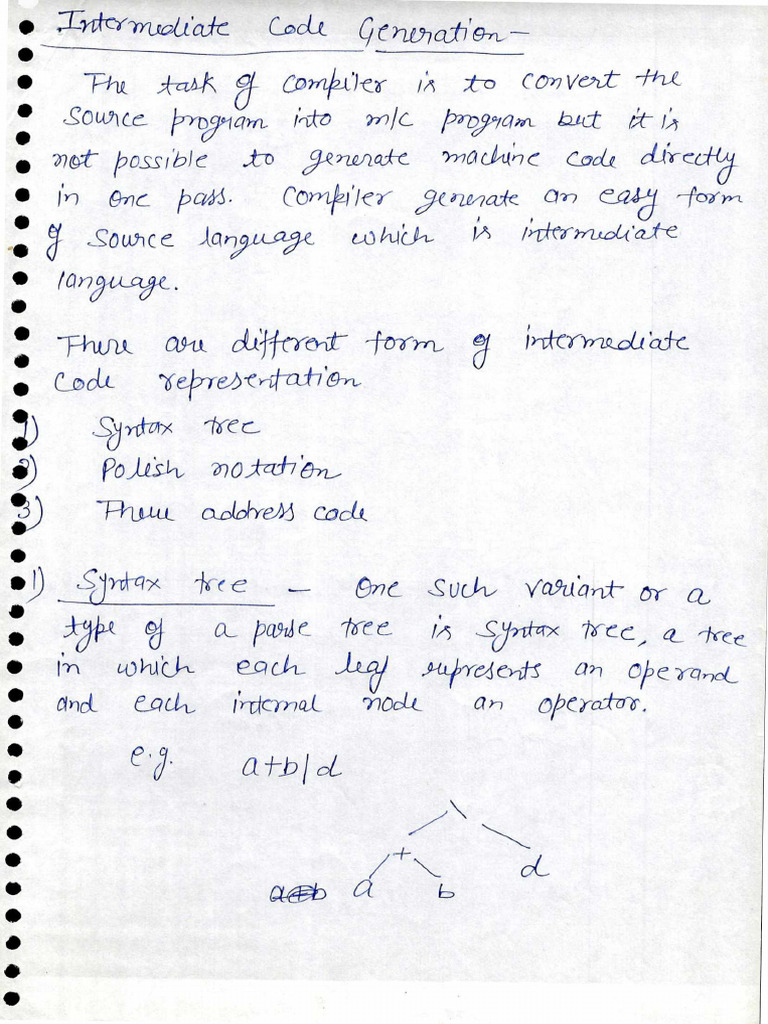 Intermediate Code Generation-
The task of compiler is to convert the
source program into m/c program but it is
not possible to generate machine code directly
in one pass. Compiler generate an easy form
of source language which is intermediate
language.
There are different form of intermediate
code representation
1) Syntax tree
2) Polish notation
3) Three address code
1) Syntax tree - One such variant or a
type of a parse tree is syntax tree, a tree
in which each leaf represents an operand
and each internal node an operator.
e.g. a+b/d
\
+ d
a b